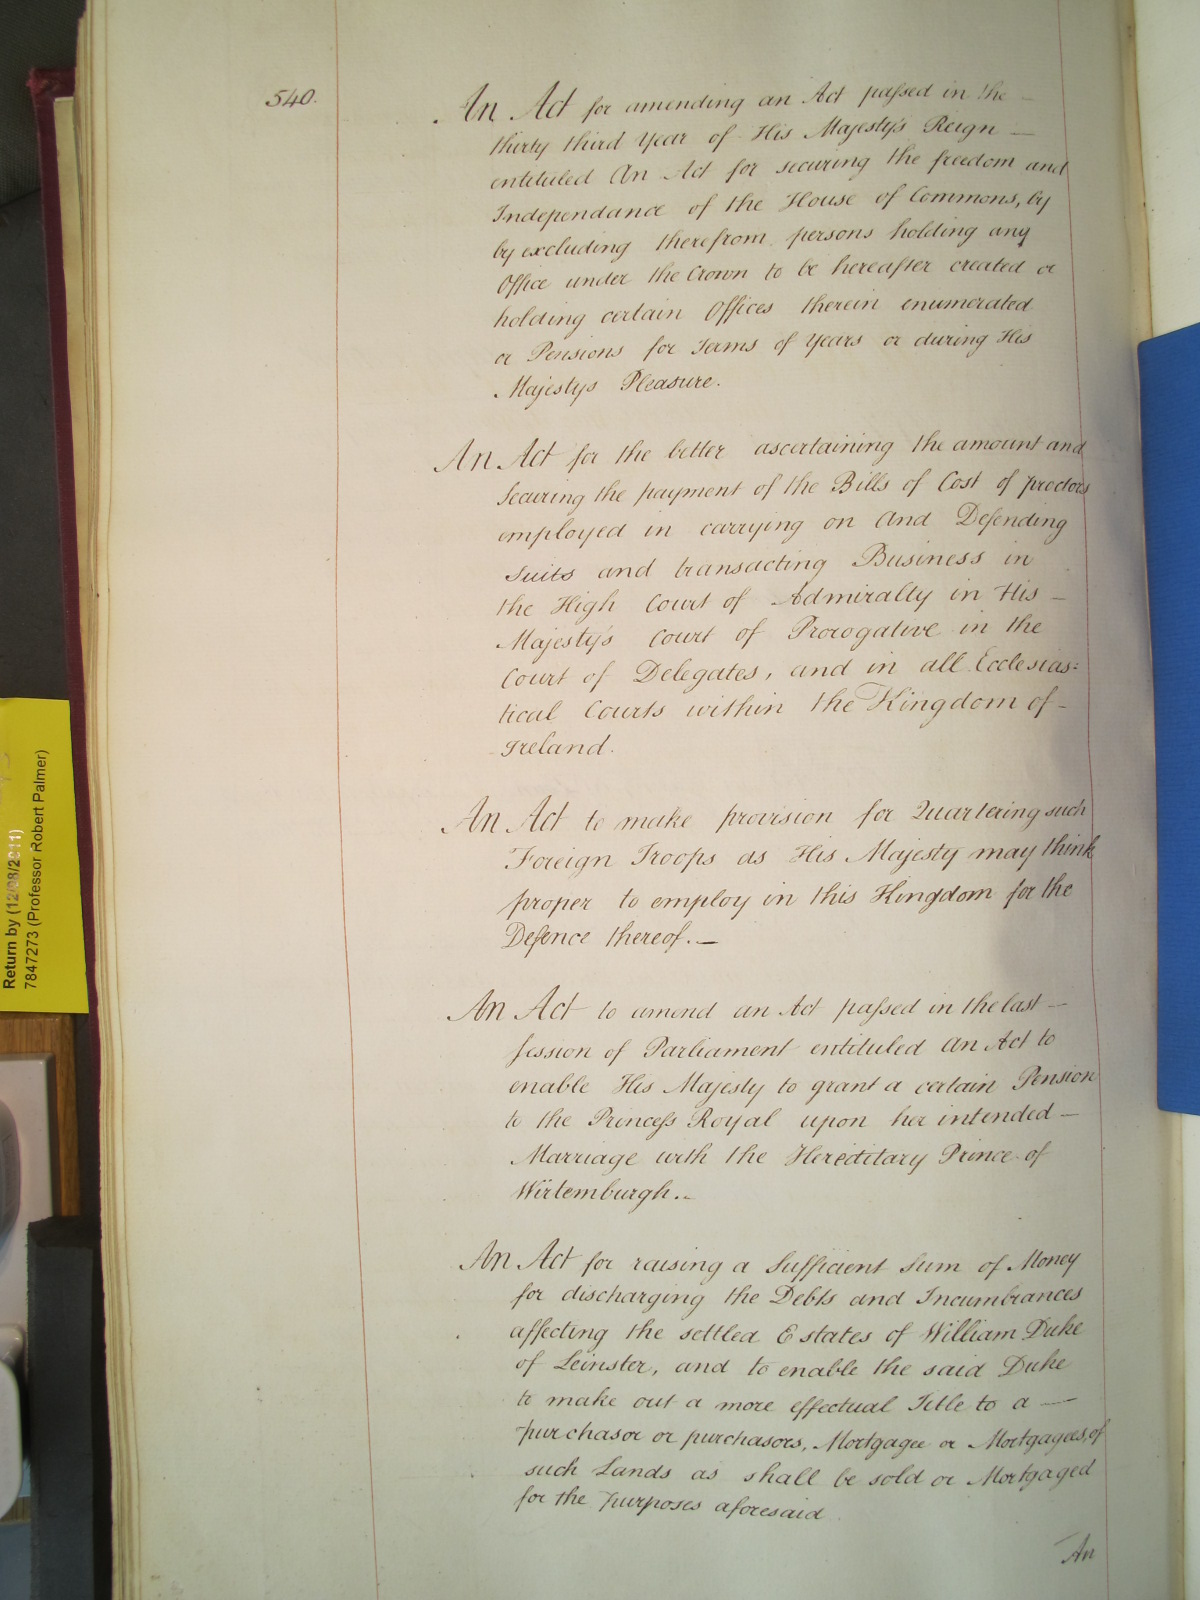 540.
An Act for amending an Act passed in the —
thirty third Year of His Majesty's Reign —
entituled An Act for securing the freedom and
Independance of the House of Commons, by
by excluding therefrom persons holding any
Office under the Crown to be hereafter created or
holding certain Offices therein enumerated
or Pensions for Terms of Years or during His
Majestys Pleasure.
An Act for the better ascertaining the amount and
Securing the payment of the Bills of Cost of proctors
employed in carrying on And Defending
Suits and transacting Business in
the High Court of Admiralty in His —
Majesty's Court of Prorogative in the
Court of Delegates, and in all Ecclesias=
tical Courts within the Kingdom of —
Ireland.
An Act to make provision for Quartering such
Foreign Troops as His Majesty may think
proper to employ in this Kingdom for the
Defence thereof. —
An Act to amend an Act passed in the last —
Session of Parliament entituled An Act to
enable His Majesty to grant a certain Pension
to the Princess Royal upon her intended —
Marriage with the Hereditary Prince of
Wirtemburgh. —
An Act for raising a Sufficient Sum of Money
for discharging the Debts and Incumbrances
affecting the settled Estates of William Duke
of Leinster, and to enable the said Duke
to make out a more effectual Title to a —
purchasor or purchasors, Mortgagee or Mortgagees, of
such Lands as shall be sold or Mortgaged
for the purposes aforesaid
An
Return by (12/08/2011)
7847273 (Professor Robert Palmer)